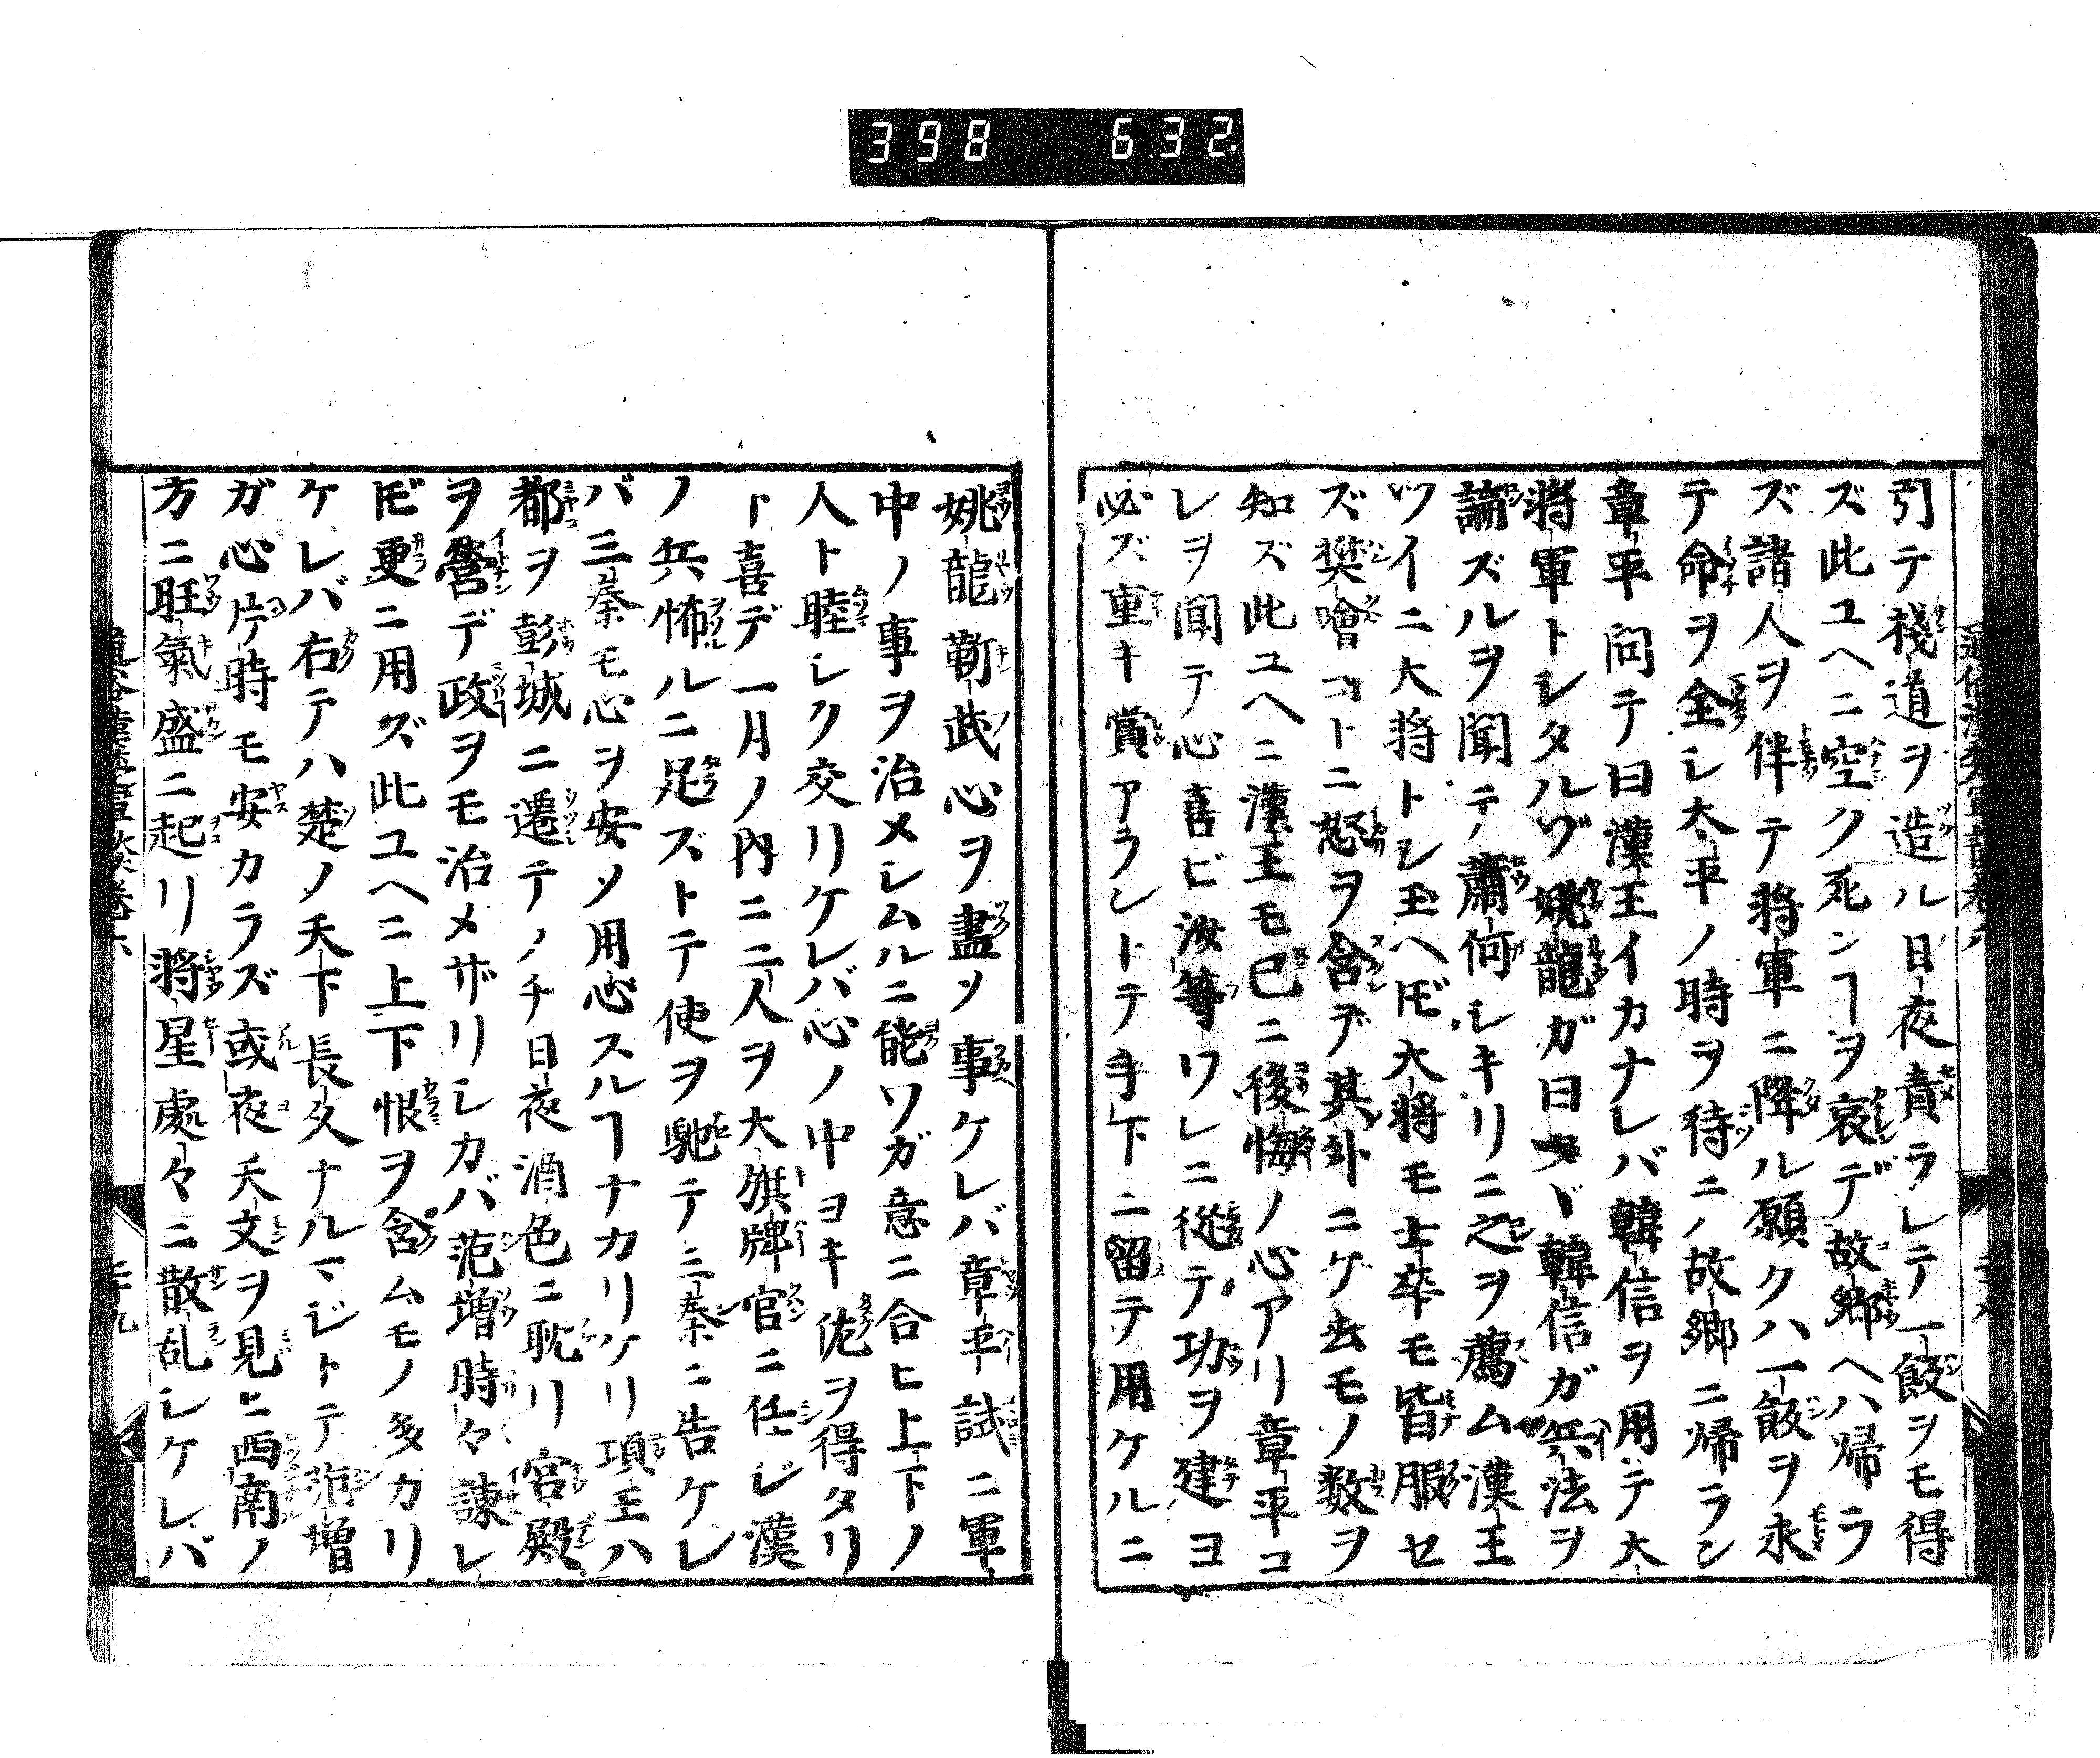 398 632
引テ棧道ヲ造ル日夜責ラレテ一飯ヲモ得
ズ此ユヘニ空ク死ンヿヲ哀デ故郷ヘハ帰ラ
ズ諸人ヲ伴テ将軍ニ降ル願クハ一飯ヲ求
テ命ヲ全シ太平ノ時ヲ待ニノ故郷ニ帰ラン
章平問テ曰漢王イカナレバ韓信ヲ用テ大
将軍トシタルゾ姚龍ガ曰タヾ韓信ガ兵法ヲ
論ズルヲ聞テ蕭何シキリニ之ヲ薦ム漢王
ツイニ大将トシ玉ヘ𪜈大将モ士卒モ皆服セ
ズ樊噲コトニ怒ヲ含デ其外ニケ去モノ数ヲ
知ズ此ユヘニ漢王モ已ニ後悔ノ心アリ章平コ
レヲ聞テ心喜ビ汝等ワレニ從テ功ヲ建ヨ
必ズ重キ賞アラントテ手下ニ留テ用ケルニ
姚龍靳武心ヲ盡ソ事ケレバ章平試ニ軍
中ノ事ヲ治メシムルニ能ワガ意ニ合ヒ上下ノ
人ト睦シク交リケレバ心ノ中ヨキ佐ヲ得タリ
ト喜デ一月ノ内ニ二人ヲ大旗牌官ニ任ジ漢
ノ兵怖ルニ足ズトテ使ヲ馳テ三秦ニ告ケレ
バ三秦モ心ヲ安ソ用心スルヿナカリケリ項王ハ
都ヲ彭城ニ遷テノチ日夜酒色ニ耽リ宮殿
ヲ營デ政ヲモ治メザリシカバ范増時々諫レ
𪜈更ニ用ズ此ユヘニ上下恨ヲ含ムモノ多カリ
ケレバ右テハ楚ノ天下長久ナルマジトテ范増
ガ心片時モ安カラズ或夜天文ヲ見ニ西南ノ
方ニ旺氣盛ニ起リ将星處々ニ散乱シケレバ